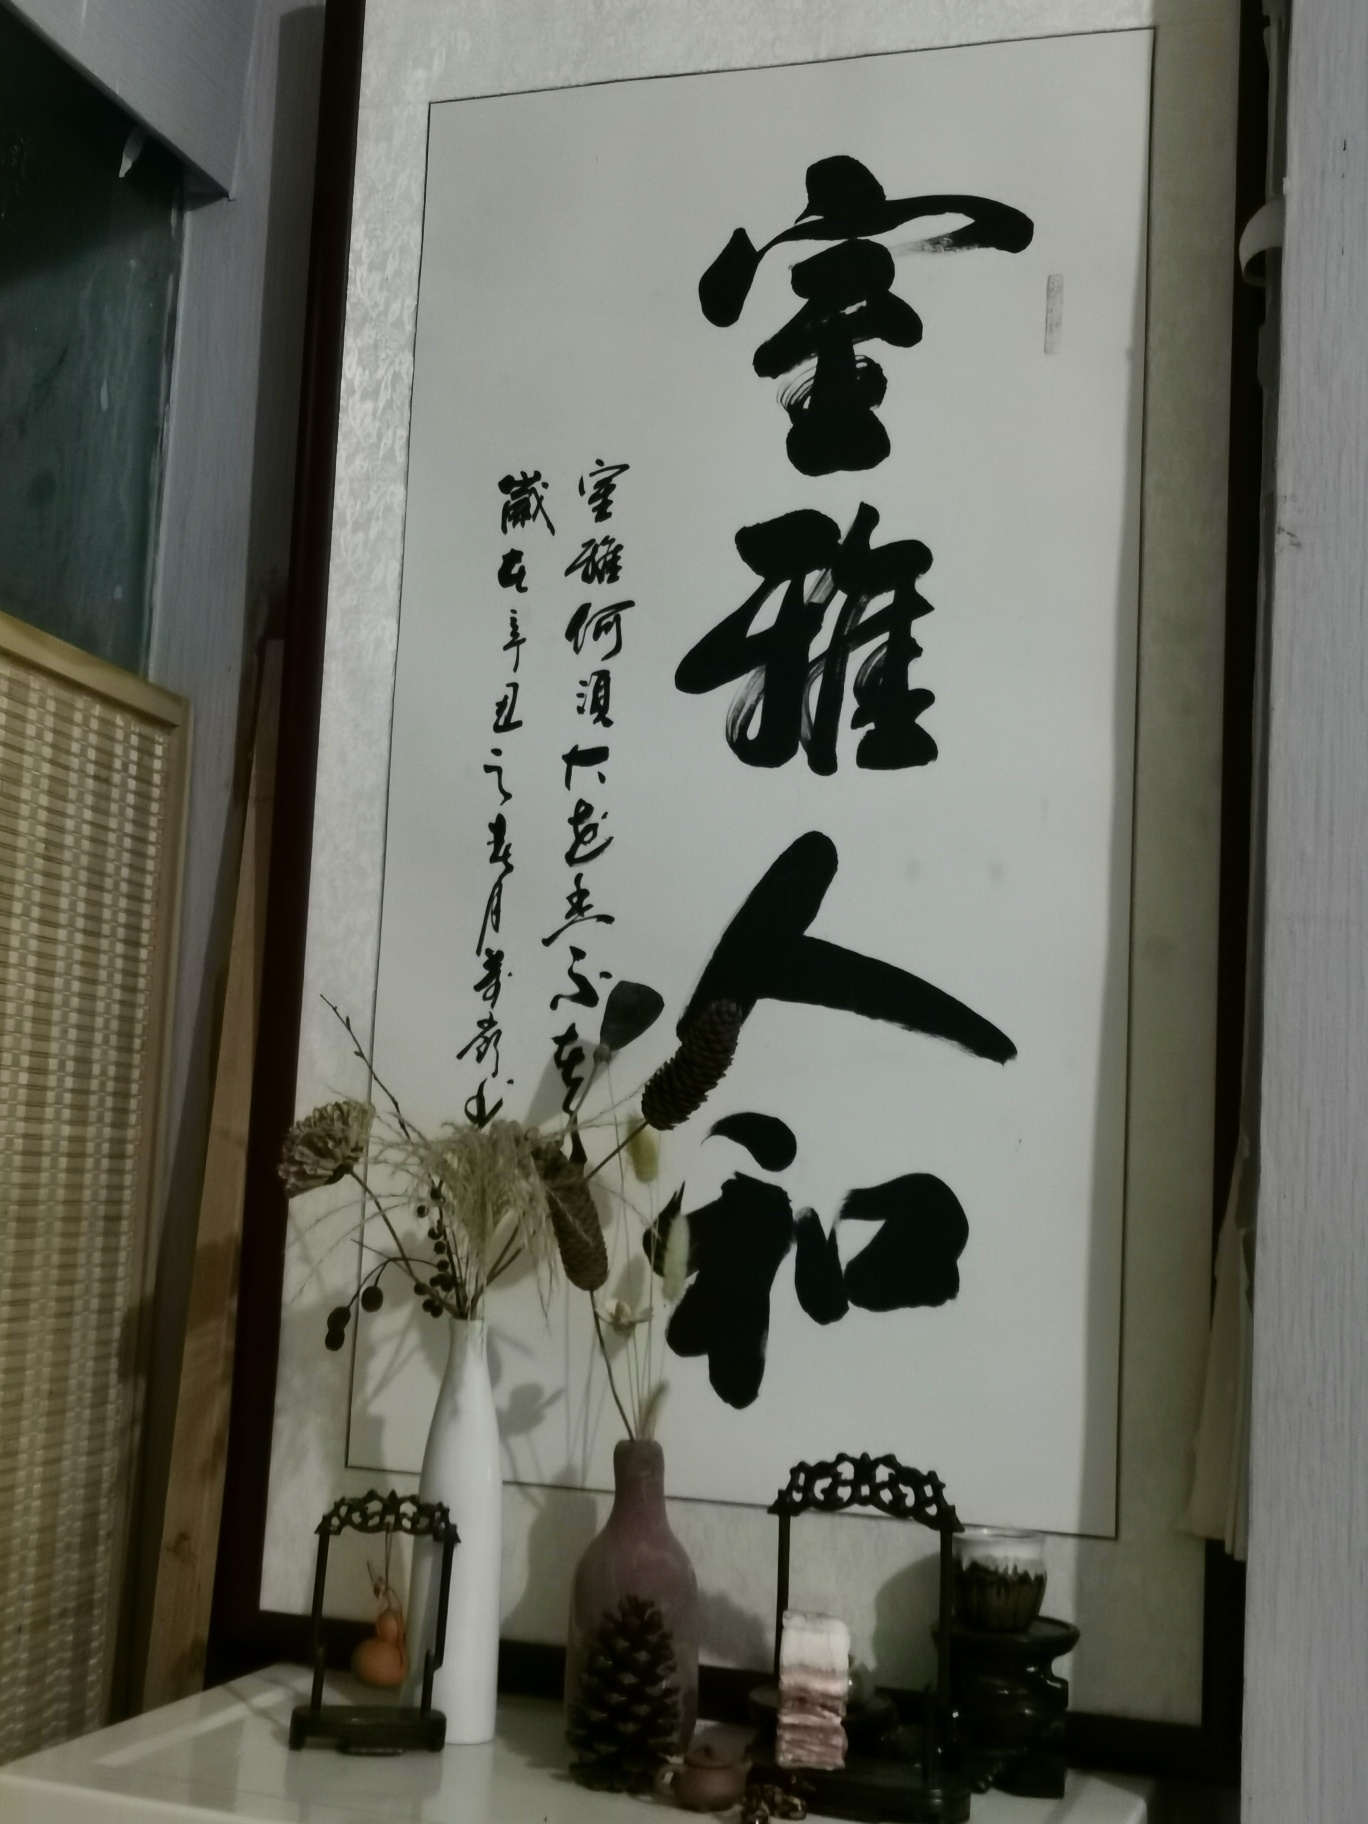 室雅人和
室雅何須大花香不在
歲在辛丑之春月